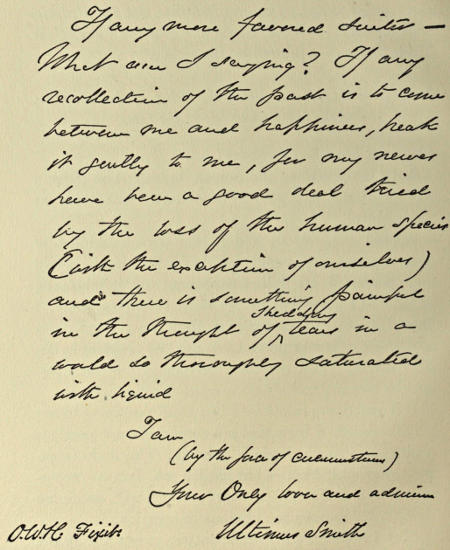 If any more favored suitor —
What am I saying? If any
recollection of the past is to come
between me and happiness, break
it gently to me, for my nerves
have been a good deal tried
by the loss of the human species
(with the exception of ourselves)
and there is something painful
in the thought of shedding tears in a
world so thoroughly saturated
with liquid
I am
(by the force of circumstances)
Your Only lover and admirer
Ultimus Smith
O.W.H. Fixit.